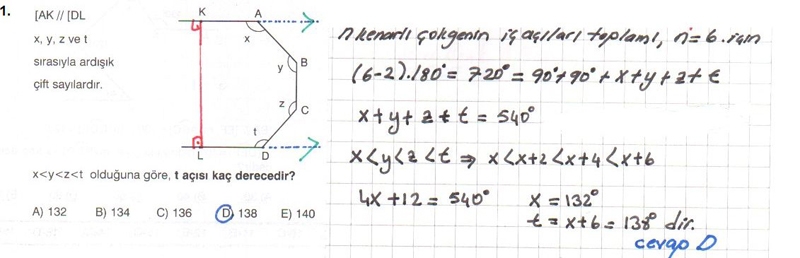 1.
[AK // [DL
x, y, z ve t
sırasıyla ardışık
çift sayılardır.
K
A
x
y
B
z
C
t
L
D
x<y<z<t olduğuna göre, t açısı kaç derecedir?
A) 132 B) 134 C) 136 D) 138 E) 140
n kenarlı çokgenin iç açıları toplamı, n=6 için
(6-2).180° = 720° = 90°+90°+x+y+z+t
x+y+z+t = 540°
x<y<z<t ⇒ x<x+2<x+4<x+6
4x+12 = 540° x = 132°
t = x+6 = 138° dir.
cevap D